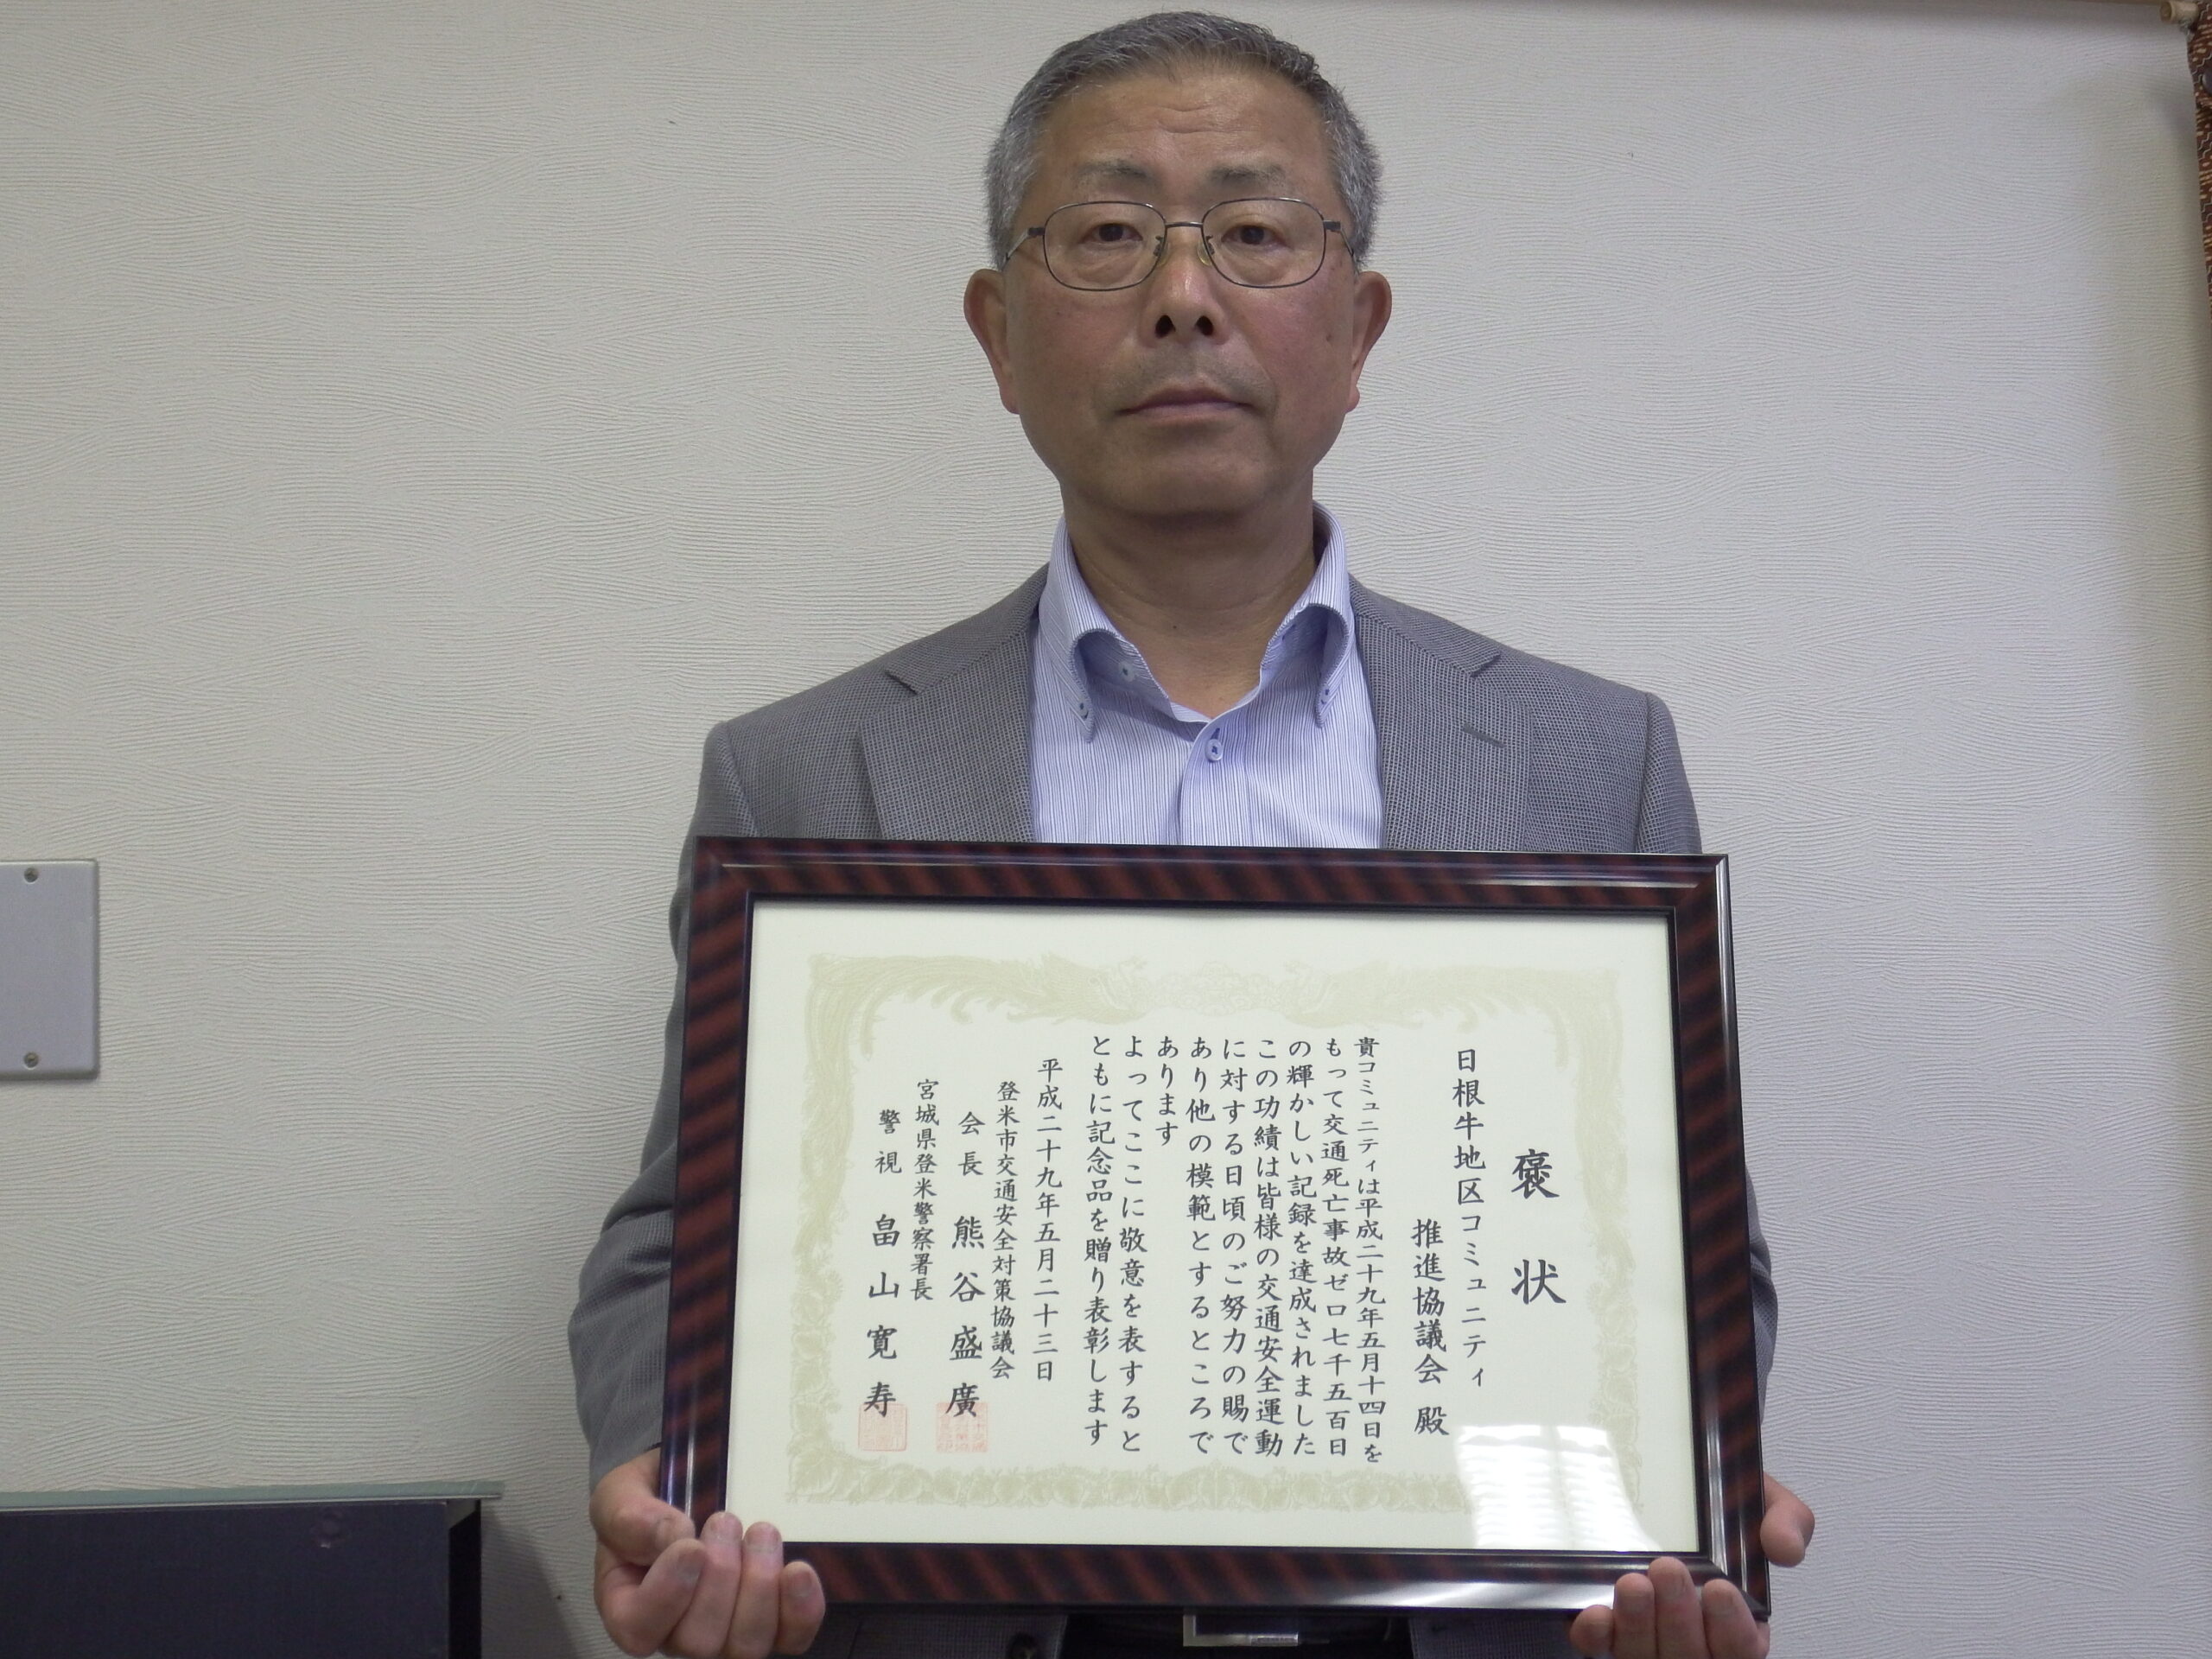 褒状
日根牛地区コミュニティ
推進協議会 殿
貴コミュニティは平成二十九年五月十四日を
もって交通死亡事故ゼロ七千五百日
の輝かしい記録を達成されました
この功績は皆様の交通安全運動
に対する日頃のご努力の賜で
あり他の模範とするところで
あります
よってここに敬意を表すると
ともに記念品を贈り表彰します
平成二十九年五月二十三日
登米市交通安全対策協議会
会長 熊谷盛廣
宮城県登米警察署長
警視 畠山寛寿